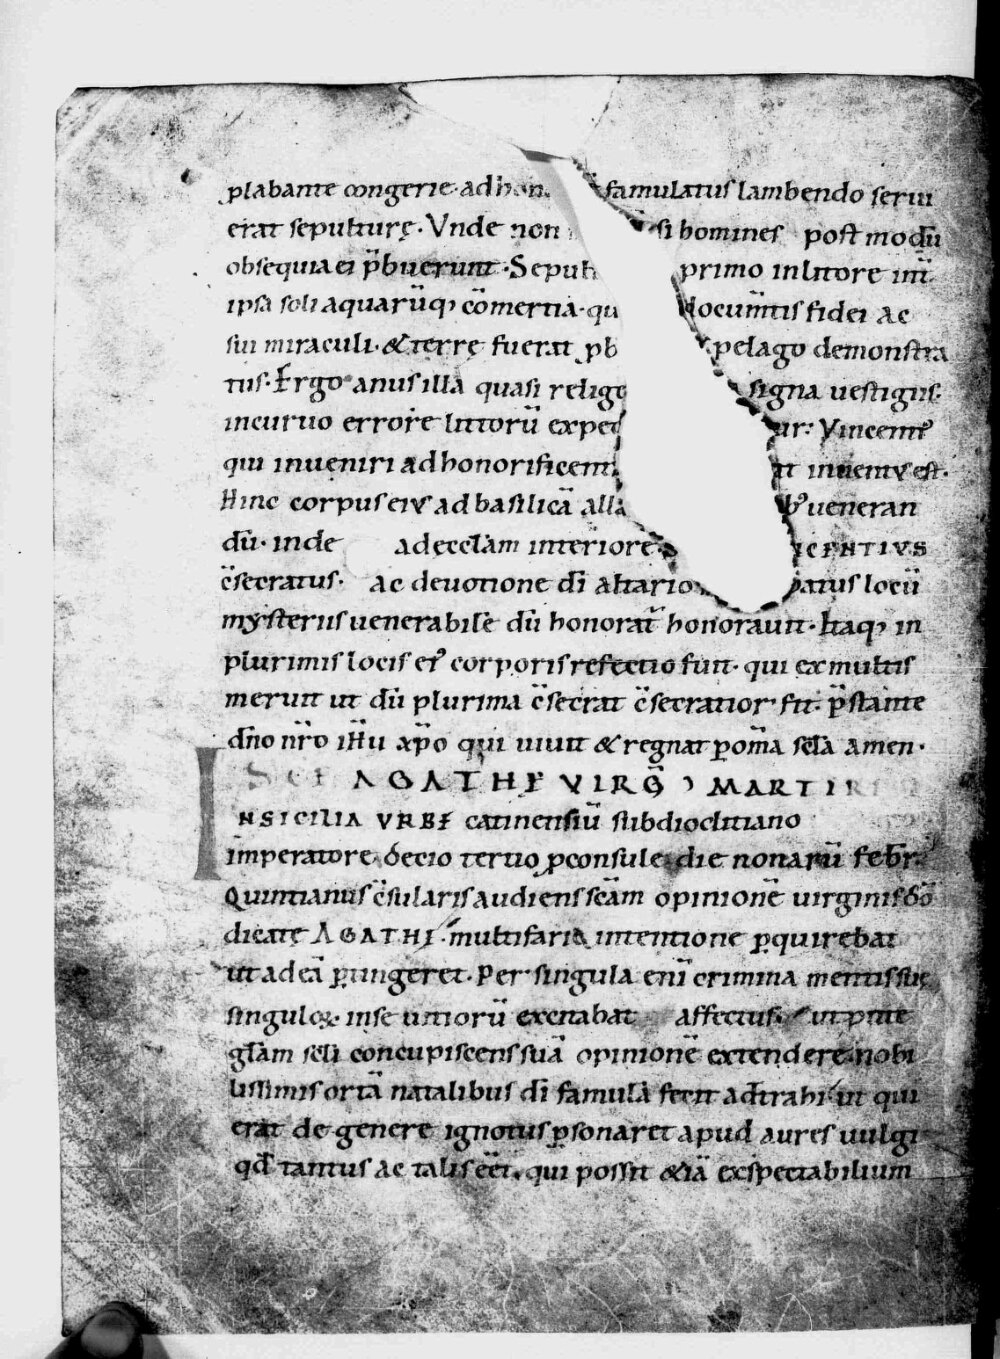 plabante congerie · ad hon famulatus lambendo serui
erat sepulturę · Vnde non si homines post modū
obsequia ei p̄buerunt · Sepul primo in litore int̄
ipsa soli aquarūq; cōmertia · qu documtis fidei ac
sui miraculi · & terrę fuerat pb pelago demonstra
tus · Ergo anus illa quasi relige signa uestigiis ·
incuruo errore littorū exped ur : Vincenti᾽
qui inueniri ad honorificent inuentus est ·
Hinc corpus eius ad basilicā alla b᾽ ueneran
dū · inde ad ecclām interiore CENTIVS
c̄secratus · ac deuotione dī altario patus locū
mysteriis uenerabile dū honorat̄ honorauit · Itaq; in
plurimis locis ei᾽ corporis refectio funt · qui ex multis
merunt ut dū plurima c̄secrat c̄secratior fit · p̄stante
dn̄o nr̄o ih̄u xp̄o qui uiuit & regnat p om̄a sc̄la amen ·
SCE AGATHE VIRḠ ; MARTIRI
INSICILIA VRBE catinensiū sub dioclitiano
imperatore decio tertio p̱consule die nonarū febr̄ ·
Quintianus c̄sularis audiens sc̄am opinionē uirginis dō
dicatę AGATHE · multifaria intentione p̱quirebat
ut ad eā p̱tingeret · Per singula enī crimina mentis suę
singulos in se uitiorū excitabat affectus · ut p̱ inte
gl̄am sc̄li concupiscens suā opinionē extendere · nobi
lissimis ortā natalibus dī famulā fecit adtrahi · ut qui
erat de genere ignotus p̱sonaret apud aures uulgi
qd̄ tantus ac talis eēt · qui possit &iā exspectabilium